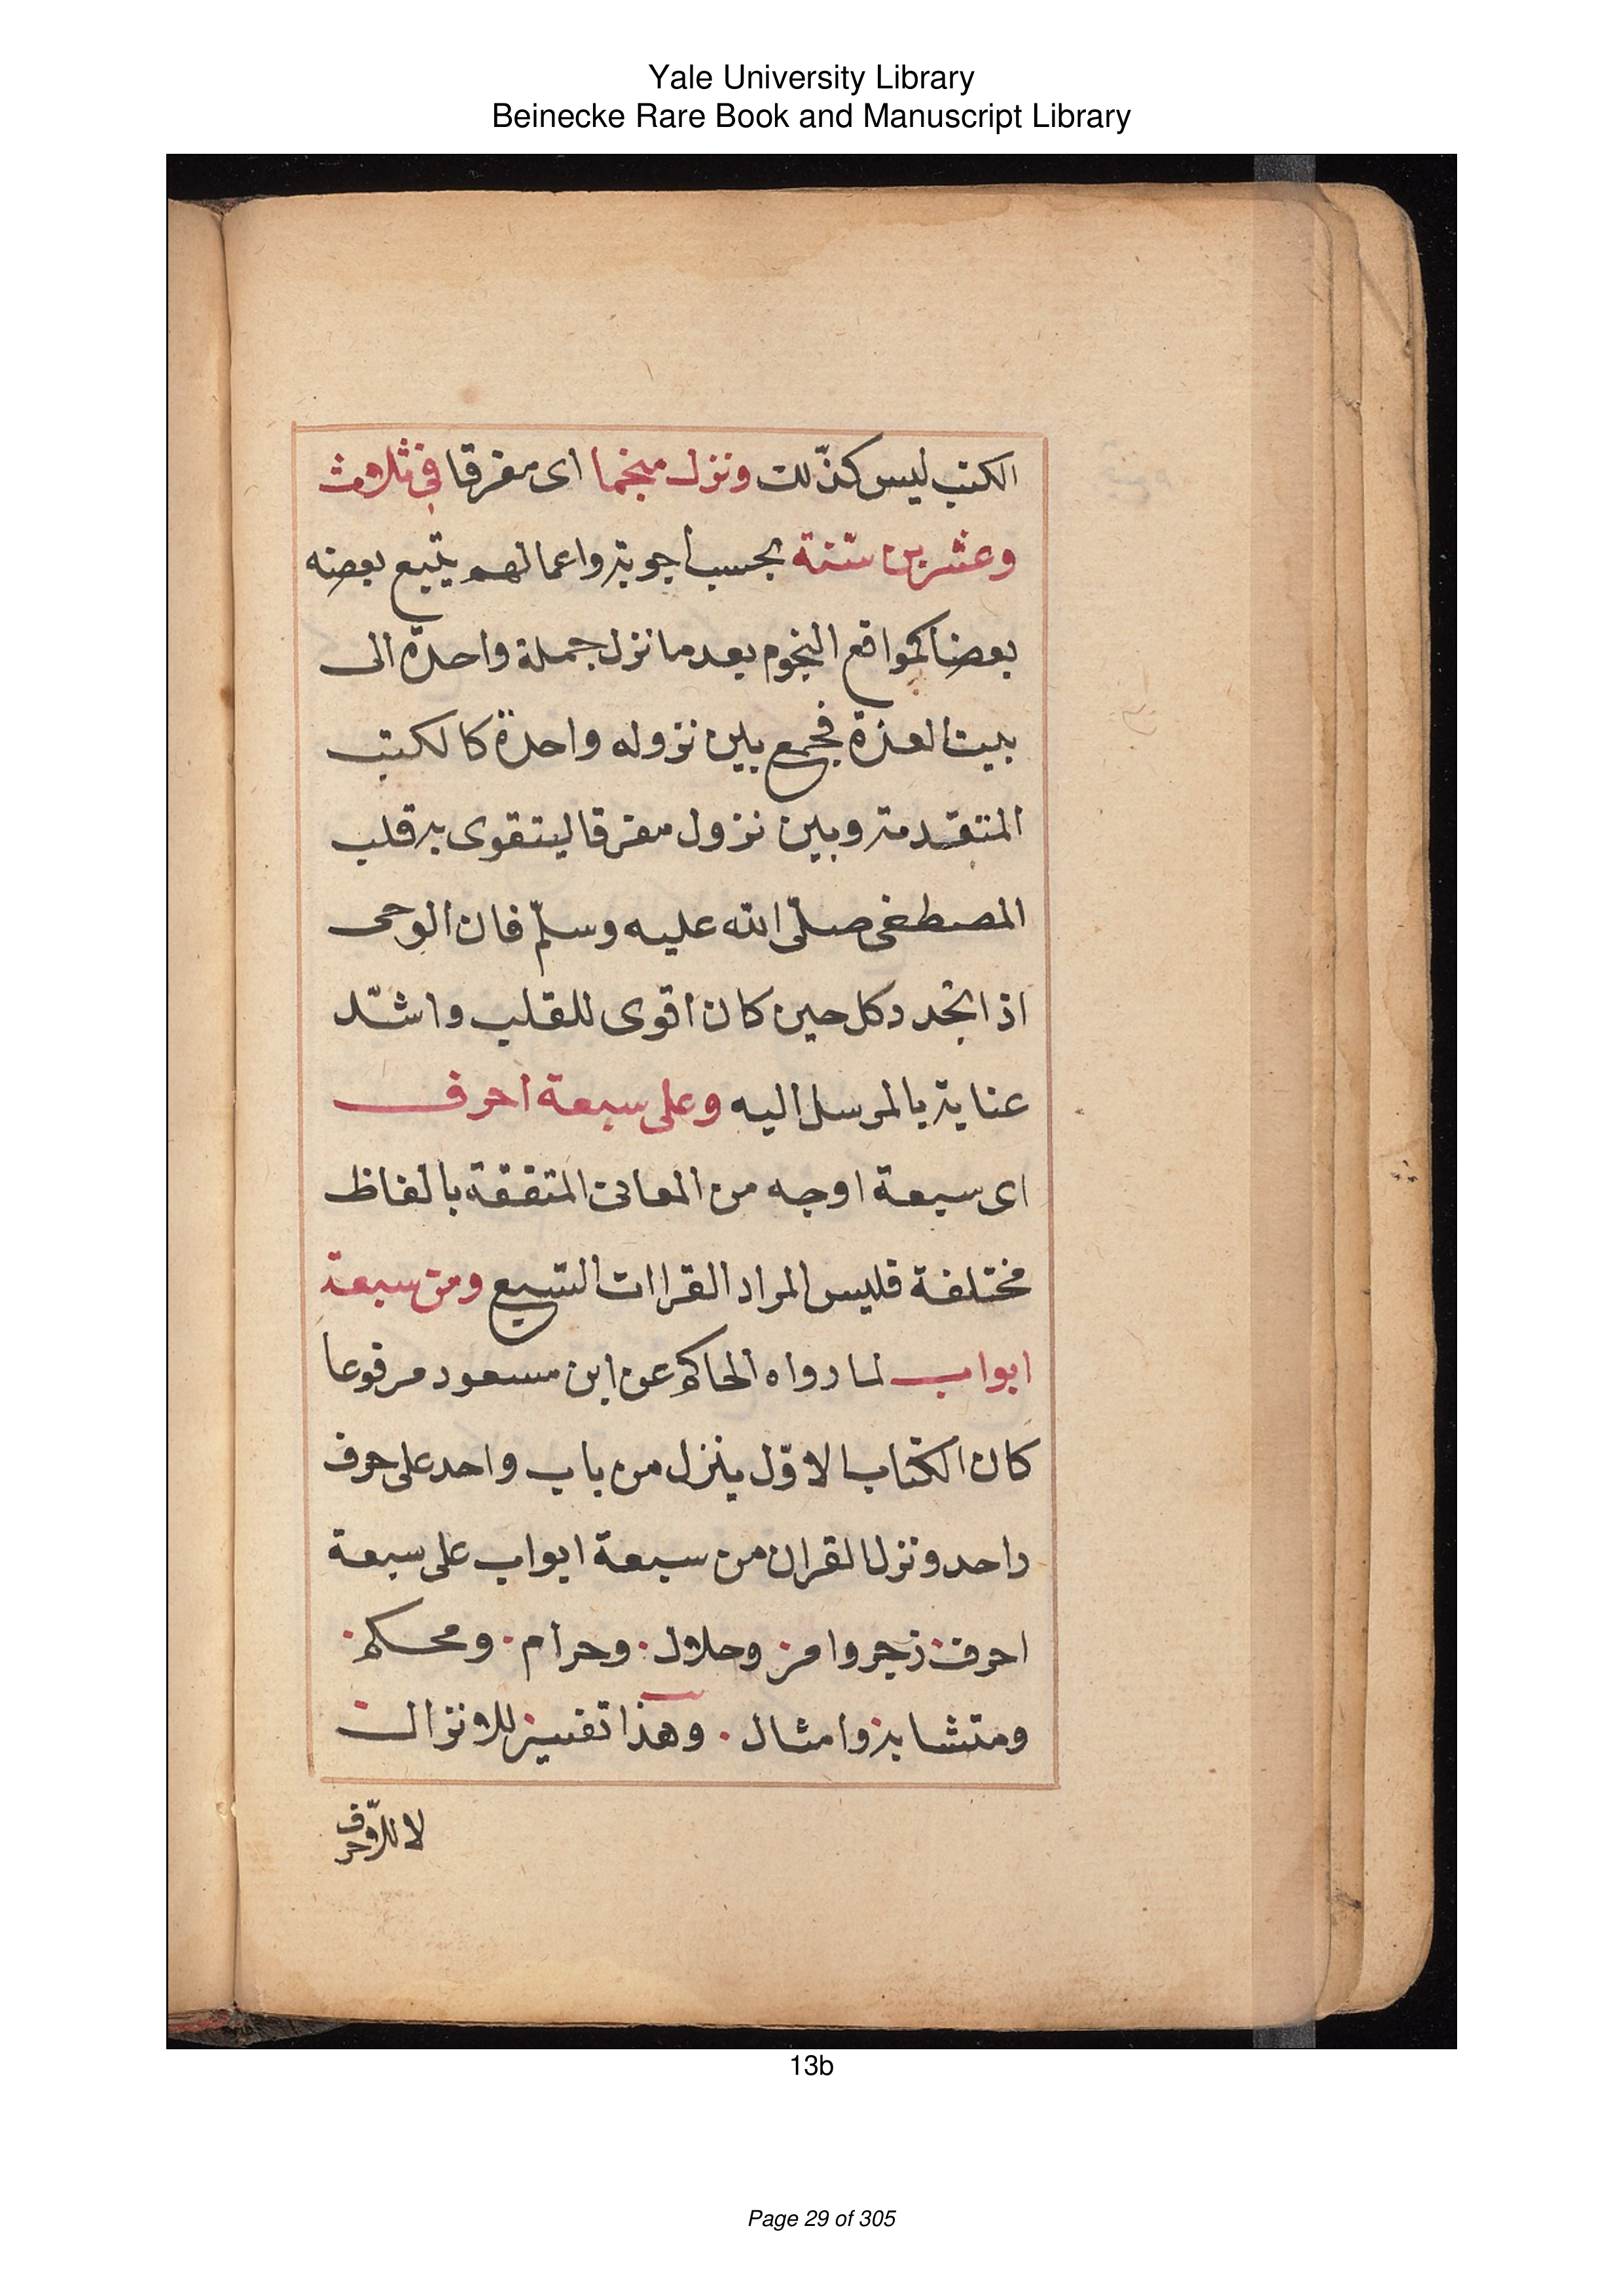 Yale University Library
Beinecke Rare Book and Manuscript Library
الكتب ليس كذلك ونزل منجما اى مفرقا فى ثلاث
وعشرين سنة بحسب اجوبة واعمالهم يتبع بعضه
بعضا كمواقع النجوم بعد ما نزل جملة واحدة الى
بيت العزة فجمع بين نزوله واحدة كالكتب
المتقدمة وبين نزول مفرقا ليتقوى به قلب
المصطفى صلّى الله عليه وسلّم فان الوحى
اذا تجدد كل حين كان اقوى للقلب واشدّ
عناية بالمرسل اليه وعلى سبعة احرف
اى سبعة اوجه من المعانى المتفقة بالفاظ
مختلفة فليس المراد القراات السبع ومن سبعة
ابواب لما رواه الحاكم عن ابن مسعود مرفوعا
كان الكتاب الاوّل ينزل من باب واحد على حرف
واحد ونزل القران من سبعة ابواب على سبعة
احرف زجر وامر وحلال . وحرام . ومحكم .
ومتشابه وامثال . وهذا تفسير للانزال
لا للاحرف
13b
Page 29 of 305